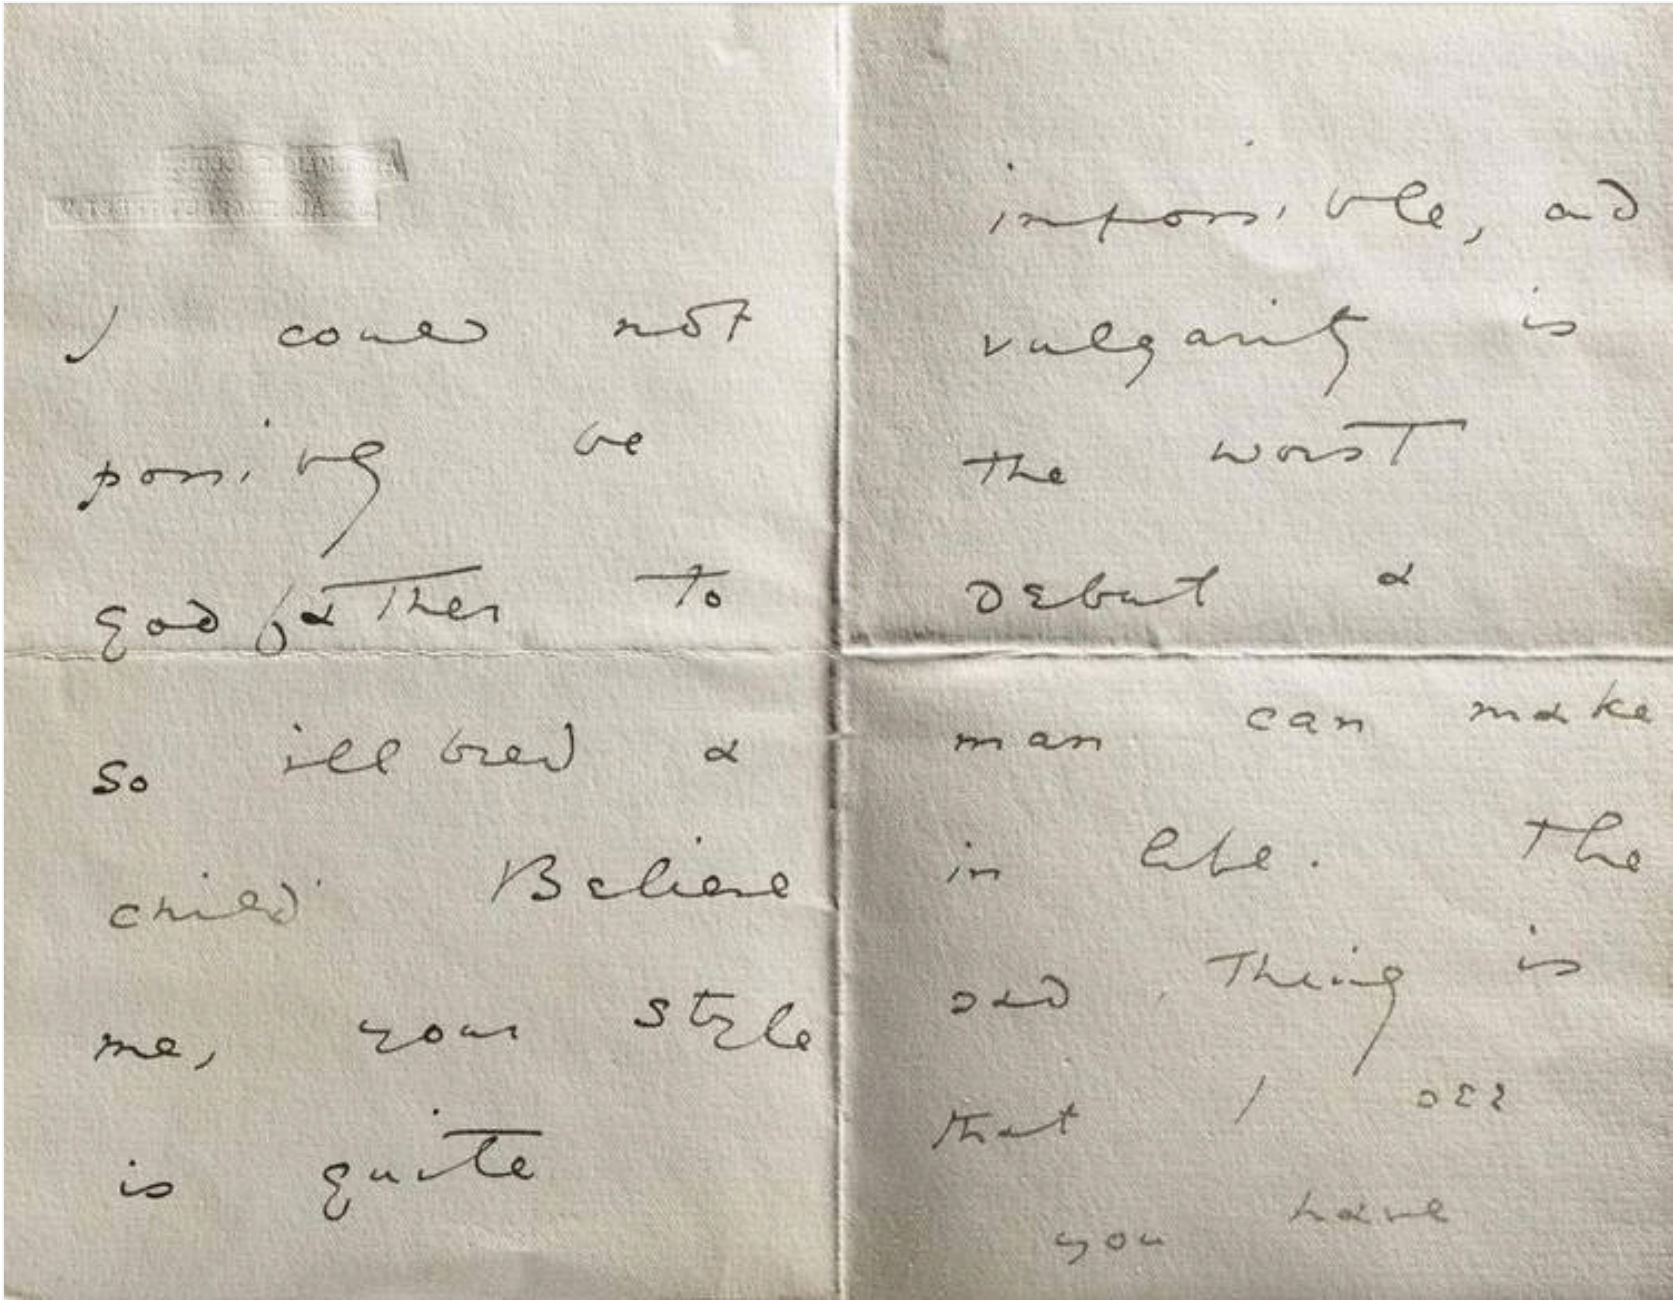 I could not
possibly be
godfather to
so ill bred a
child. Believe
me, your style
is quite
impossible, and
vulgarity is
the worst
debut a
man can make
in life. The
sad thing is
that I see
you have